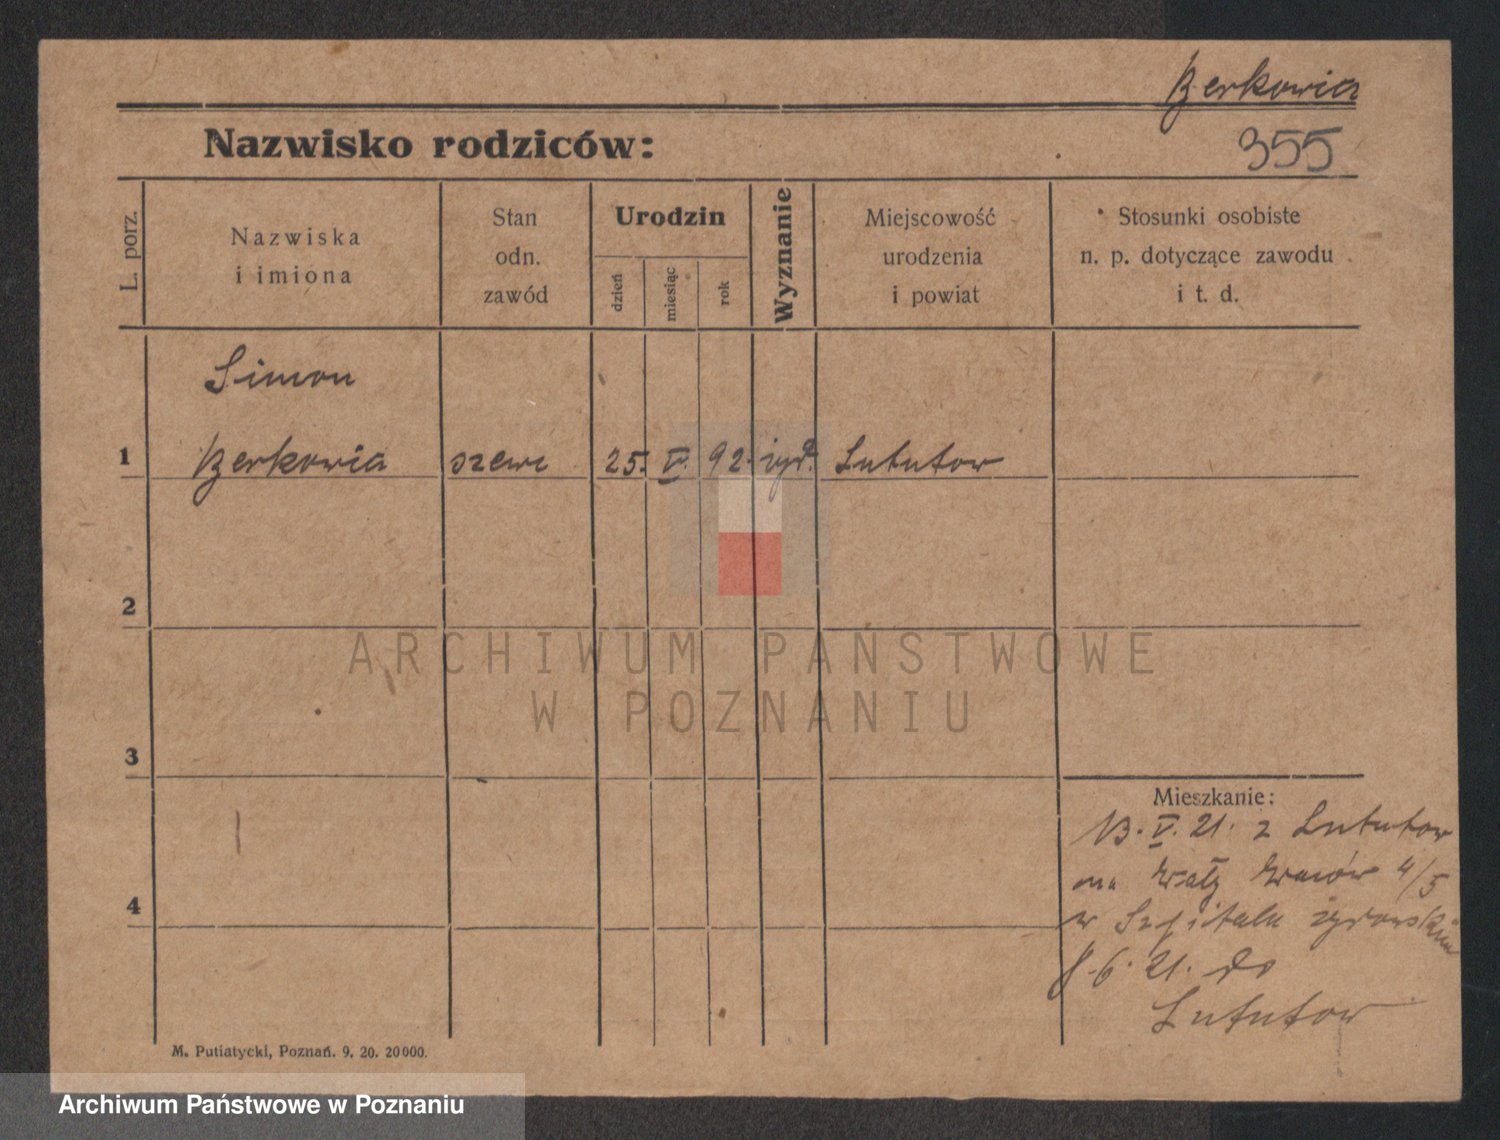 Berkowicz
355
Nazwisko rodziców:
L. porz.
Nazwiska
i imiona
Stan
odn.
zawód
Urodzin
dzień
miesiąc
rok
Wyznanie
Miejscowość
urodzenia
i powiat
Stosunki osobiste
n. p. dotyczące zawodu
i t. d.
Simon
1 Berkowicz szewc 25. V. 92. żyd. Lututow
2
ARCHIWUM PAŃSTWOWE
W POZNANIU
3
4
Mieszkanie:
13. V. 21. z Lututow
na Wały 4/5
w Szpitalu żydowskim
8. 6. 21. do
Lututow
M. Putiatycki, Poznań. 9. 20. 20000.
Archiwum Państwowe w Poznaniu